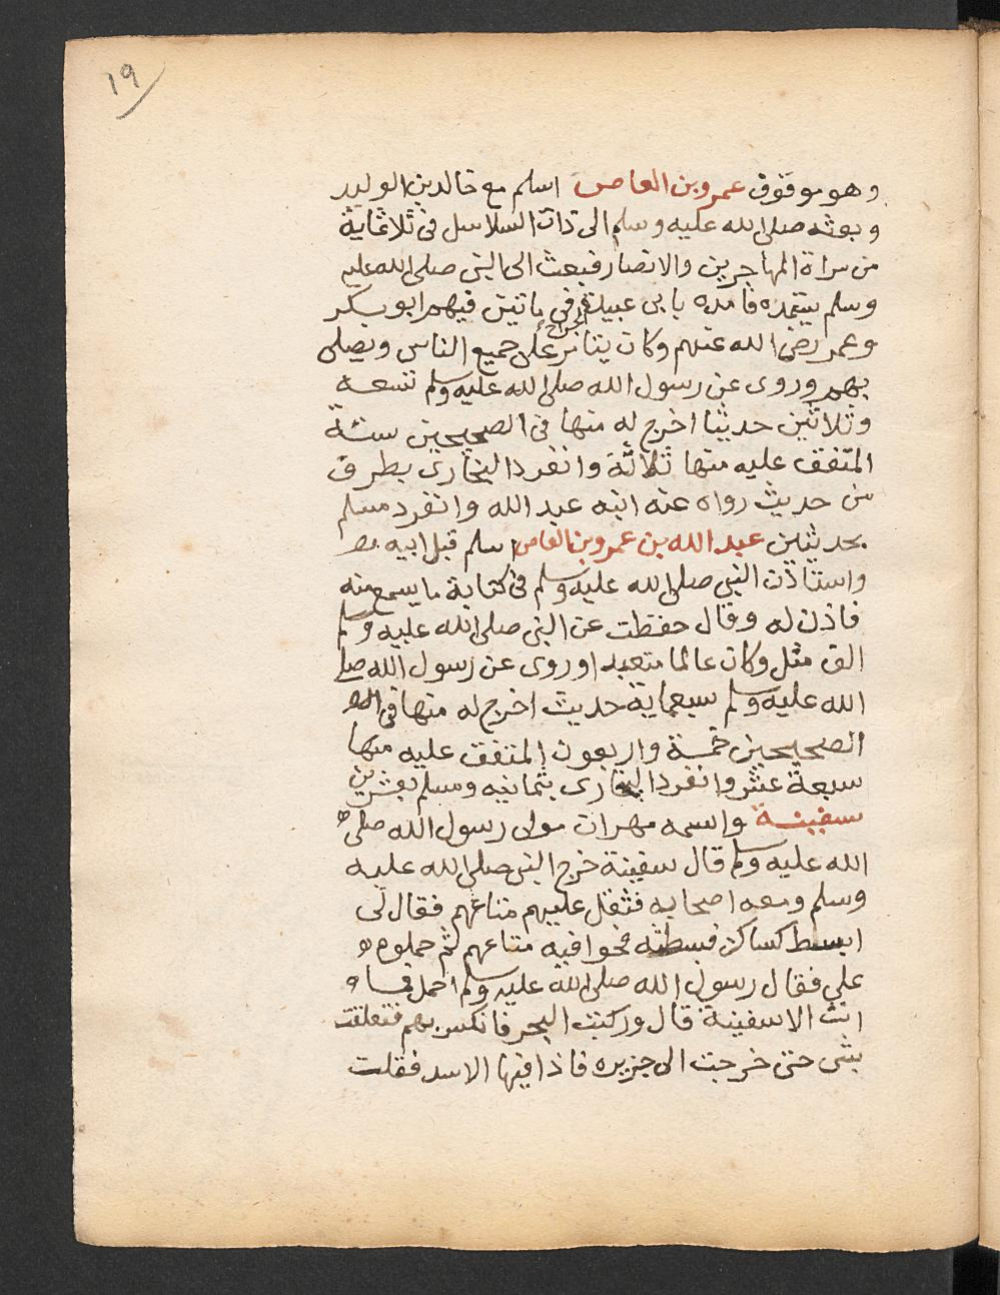 ١٩
وهو موقوف عمرو بن العاص اسلم مع خالد بن الوليد
وبعثه صلى الله عليه وسلم الى ذات السلاسل في ثلاثماية
من سراة المهاجرين والانصار فبعث الى النبي صلى الله عليه
وسلم يستمده فامده بابي عبيدة في ماتين فيهم ابو بكر
الجراح
وعمر رضى الله عنهم وكان يتامر على جميع الناس ويصلى
بهم وروى عن رسول الله صلى الله عليه وسلم تسعة
وثلاثين حديثا اخرج له منها في الصحيحين ستة
المتفق عليه منها ثلاثة وانفرد البخارى بطرف
من حديث رواه عنه ابنه عبد الله وانفرد مسلم
بحديثين عبد الله بن عمرو بن العاص اسلم قبل ابيه
واستاذن النبي صلى الله عليه وسلم في كتابة ما يسمع منه
فاذن له وقال حفظت عن النبي صلى الله عليه وسلم
الف مثل وكان عالما متعبدا وروى عن رسول الله صلى
الله عليه وسلم سبعماية حديث اخرج له منها في
الصحيحين خمسة واربعون المتفق عليه منها
سبعة عشر وانفرد البخارى بثمانيه ومسلم بعشرين
سفينة واسمه مهران مولى رسول الله صلى
الله عليه وسلم قال سفينة خرج النبي صلى الله عليه
وسلم ومعه اصحابه فثقل عليهم متاعهم فقال لى
ابسط كساك فبسطته فحولوا فيه متاعهم ثم حملوه
على فقال رسول الله صلى الله عليه وسلم احمل فما
انت الا سفينة قال وركبت البحر فانكسر بهم فتعلقت
بشى حتى خرجت الى جزيره فاذا فيها الاسد فقلت